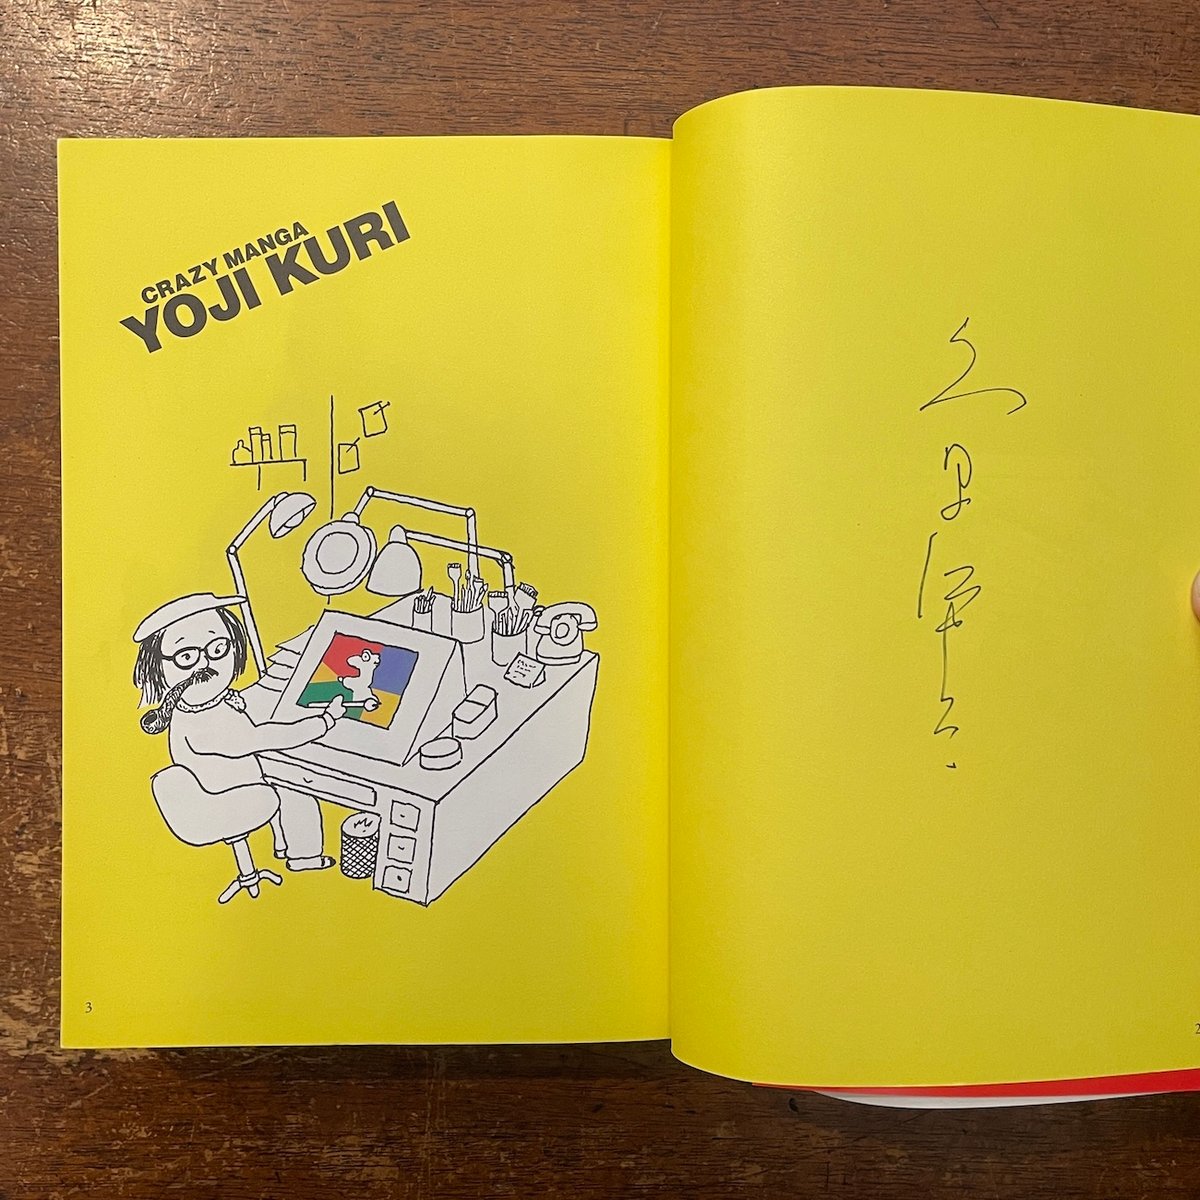 CRAZY MANGA
YOJI KURI
久里洋二
3
2